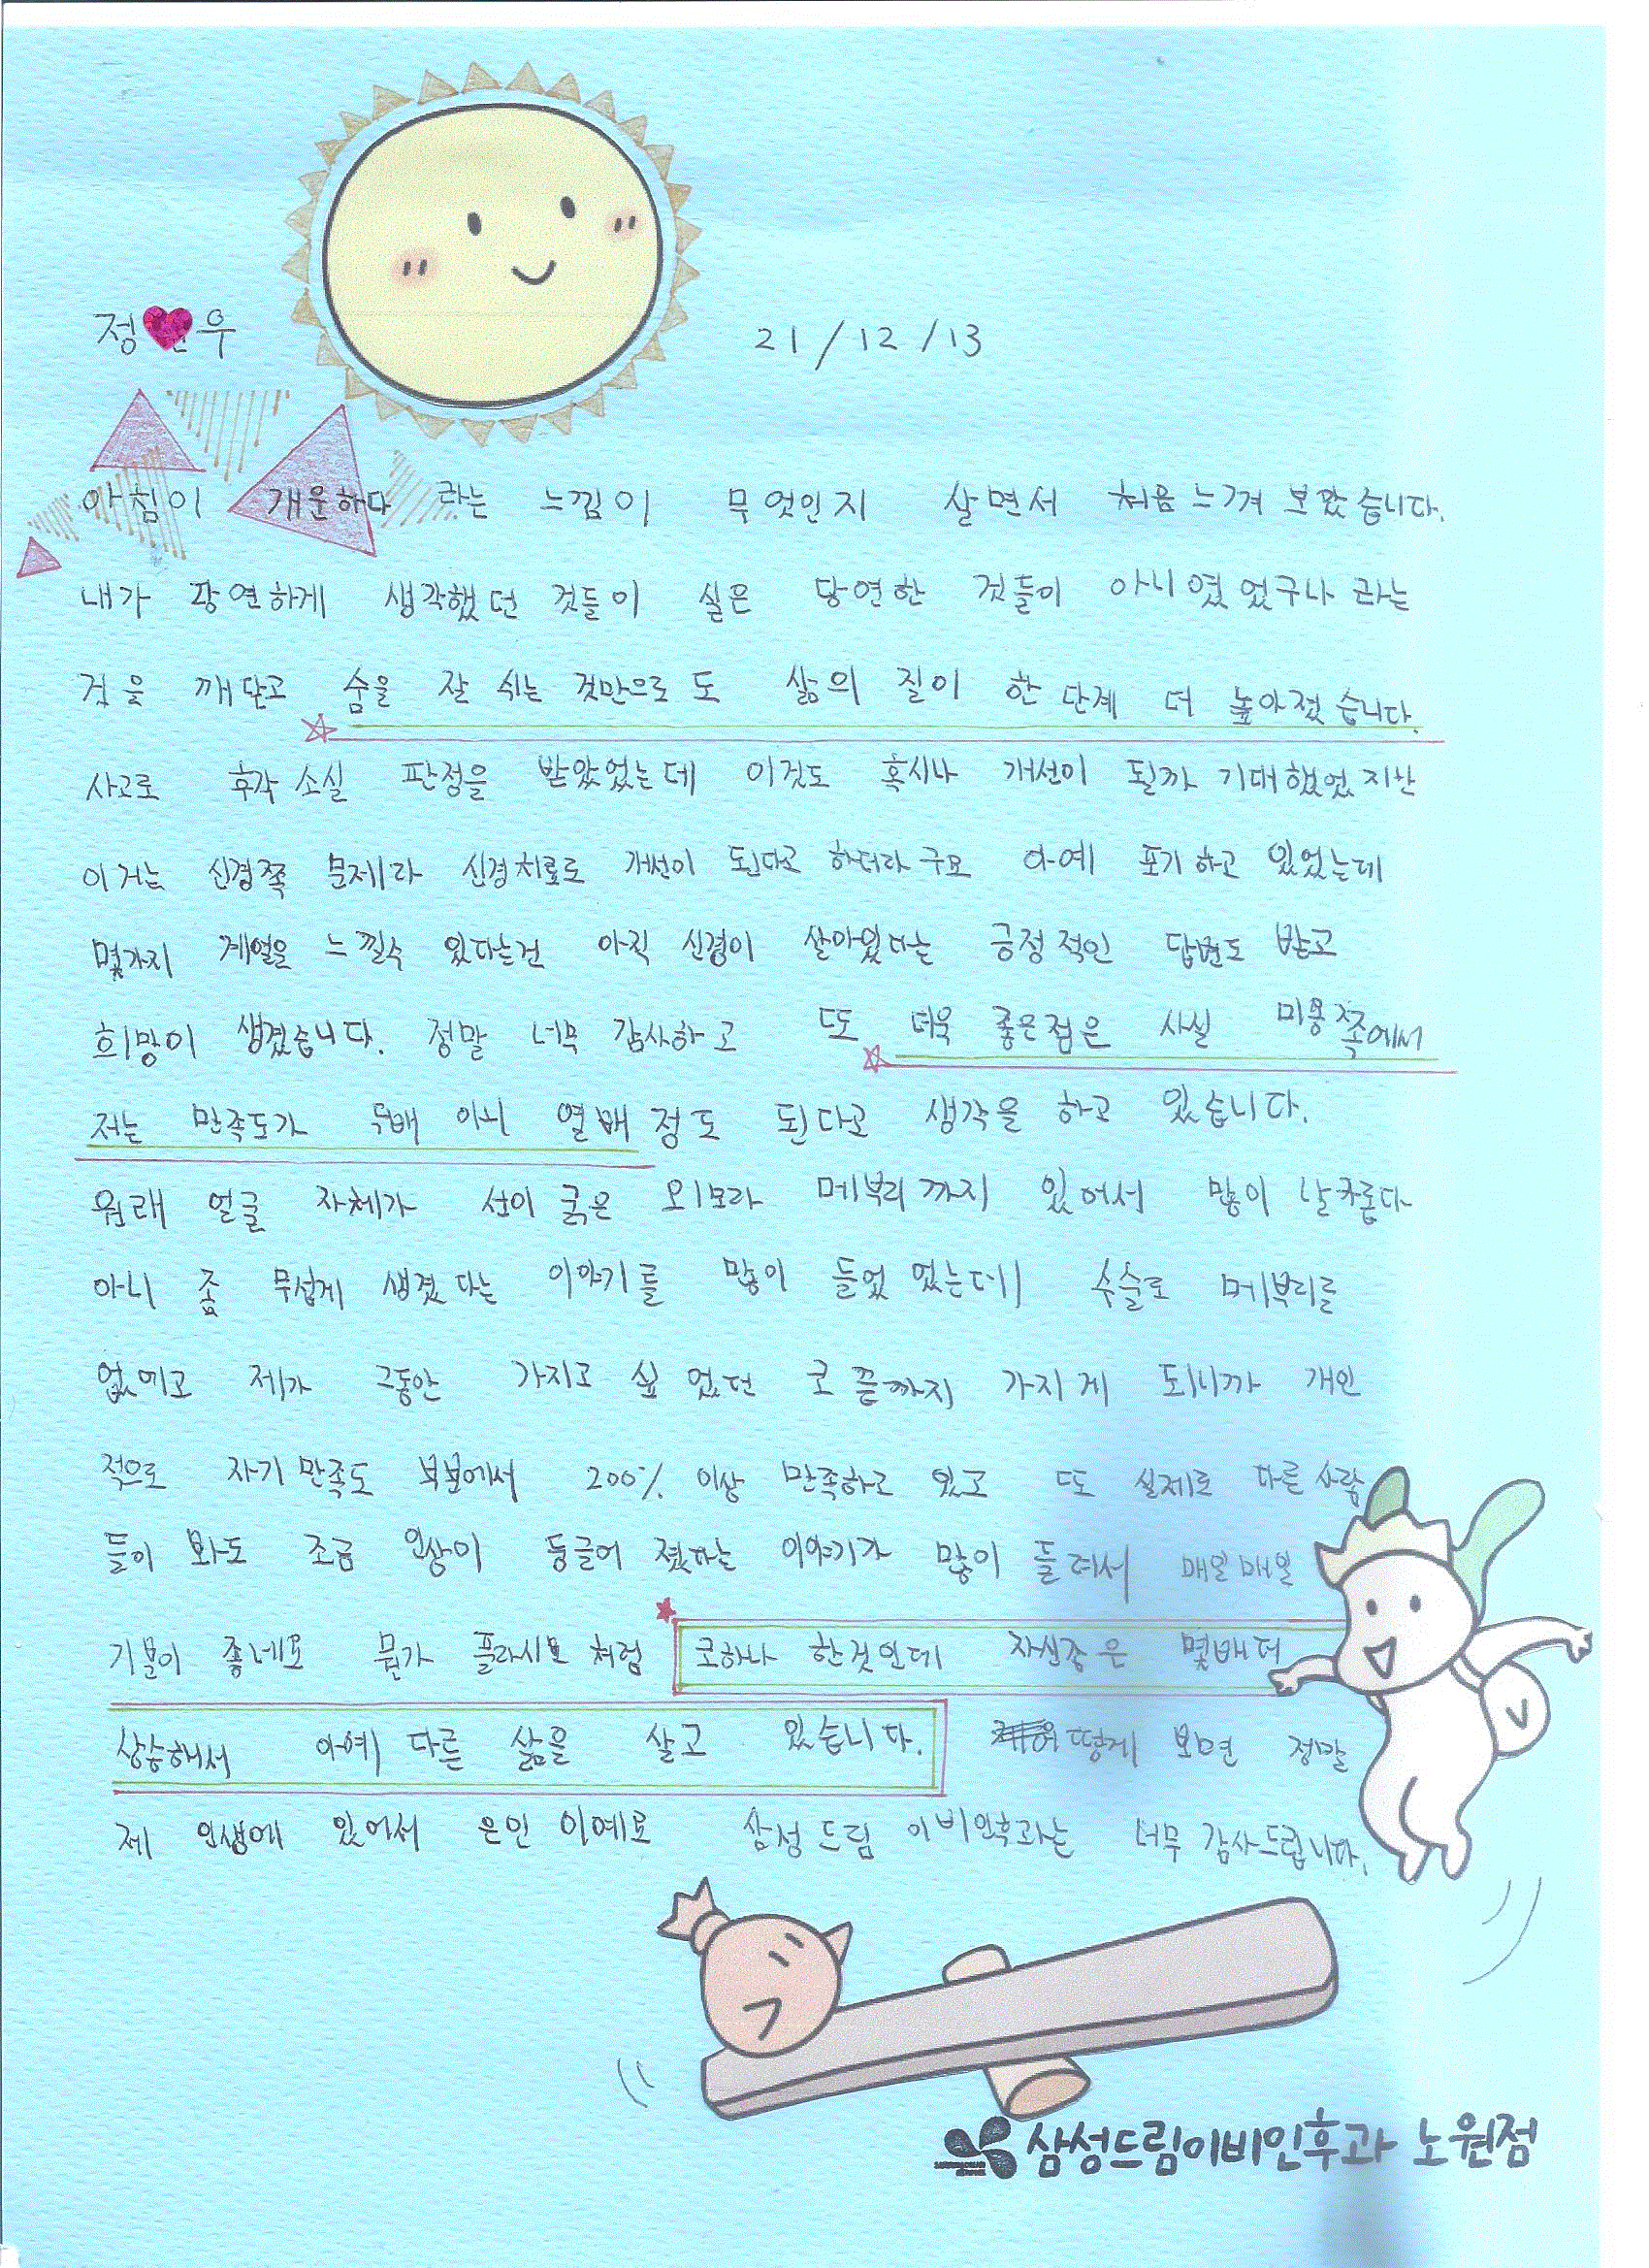 정 우
21/12/13
아침이 개운하다 라는 느낌이 무엇인지 살면서 처음 느껴 보았습니다.
내가 당연하게 생각했던 것들이 실은 당연한 것들이 아니였었구나 라는
것을 깨닫고 숨을 잘 쉬는 것만으로도 삶의 질이 한 단계 더 높아졌습니다.
사고로 후각 소실 판정을 받았었는데 이것도 혹시나 개선이 될까 기대했었지만
이거는 신경쪽 문제라 신경치료로 개선이 된다고 하더라구요 아예 포기하고 있었는데
몇가지 계열을 느낄수 있다는건 아직 신경이 살아있다는 긍정적인 답변도 받고
희망이 생겼습니다. 정말 너무 감사하고 또 더욱 좋은점은 사실 미용쪽에서
저는 만족도가 두배 아니 열배 정도 된다고 생각을 하고 있습니다.
원래 얼굴 자체가 선이 굵은 외모라 메부리까지 있어서 많이 날카롭다
아니 좀 무섭게 생겼다는 이야기를 많이 들었었는데 수술로 메부리를
없애고 제가 그동안 가지고 싶었던 코 끝까지 가지게 되니까 개인
적으로 자기만족도 부분에서 200% 이상 만족하고 있고 또 실제로 다른 사람
들이 봐도 조금 인상이 둥글어 졌다는 이야기가 많이 들려서 매일매일
기분이 좋네요 뭔가 플라시보 처럼 코하나 한것인데 자신감은 몇배 더
상승해서 아예 다른 삶을 살고 있습니다. 어떻게 보면 정말
제 인생에 있어서 은인 이예요 삼성드림 이비인후과는 너무 감사드립니다.
삼성드림이비인후과 노원점